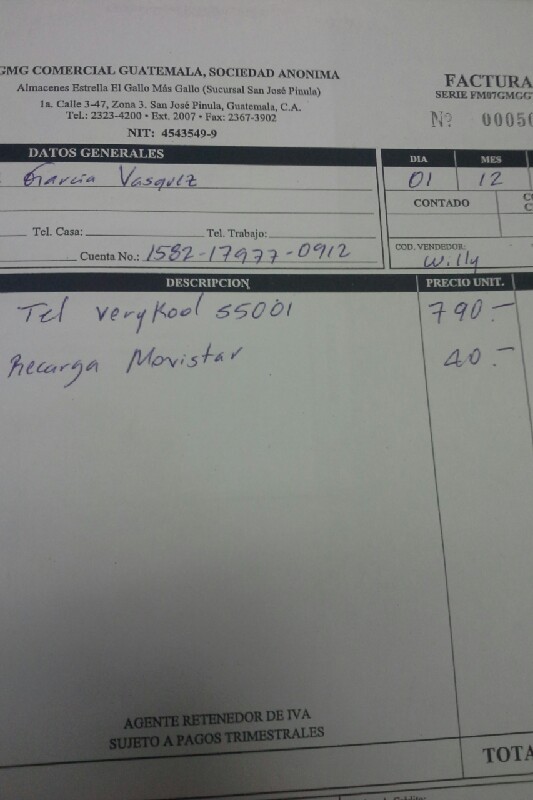 GMG COMERCIAL GUATEMALA, SOCIEDAD ANONIMA
Almacenes Estrella El Gallo Más Gallo (Sucursal San José Pinula)
1a. Calle 3-47, Zona 3. San José Pinula, Guatemala, C.A.
Tel.: 2323-4200 • Ext. 2007 • Fax: 2367-3902
NIT: 4543549-9
FACTURA
SERIE FM07GMGG
Nº 0005
DATOS GENERALES
DIA MES
Garcia Vasquez
01 12
CONTADO
Tel. Casa: Tel. Trabajo:
Cuenta No.: 1582-17977-0912
COD. VENDEDOR:
Willy
DESCRIPCION PRECIO UNIT.
Tel verykool S5001 790.-
Recarga Movistar 40.-
AGENTE RETENEDOR DE IVA
SUJETO A PAGOS TRIMESTRALES
TOTA